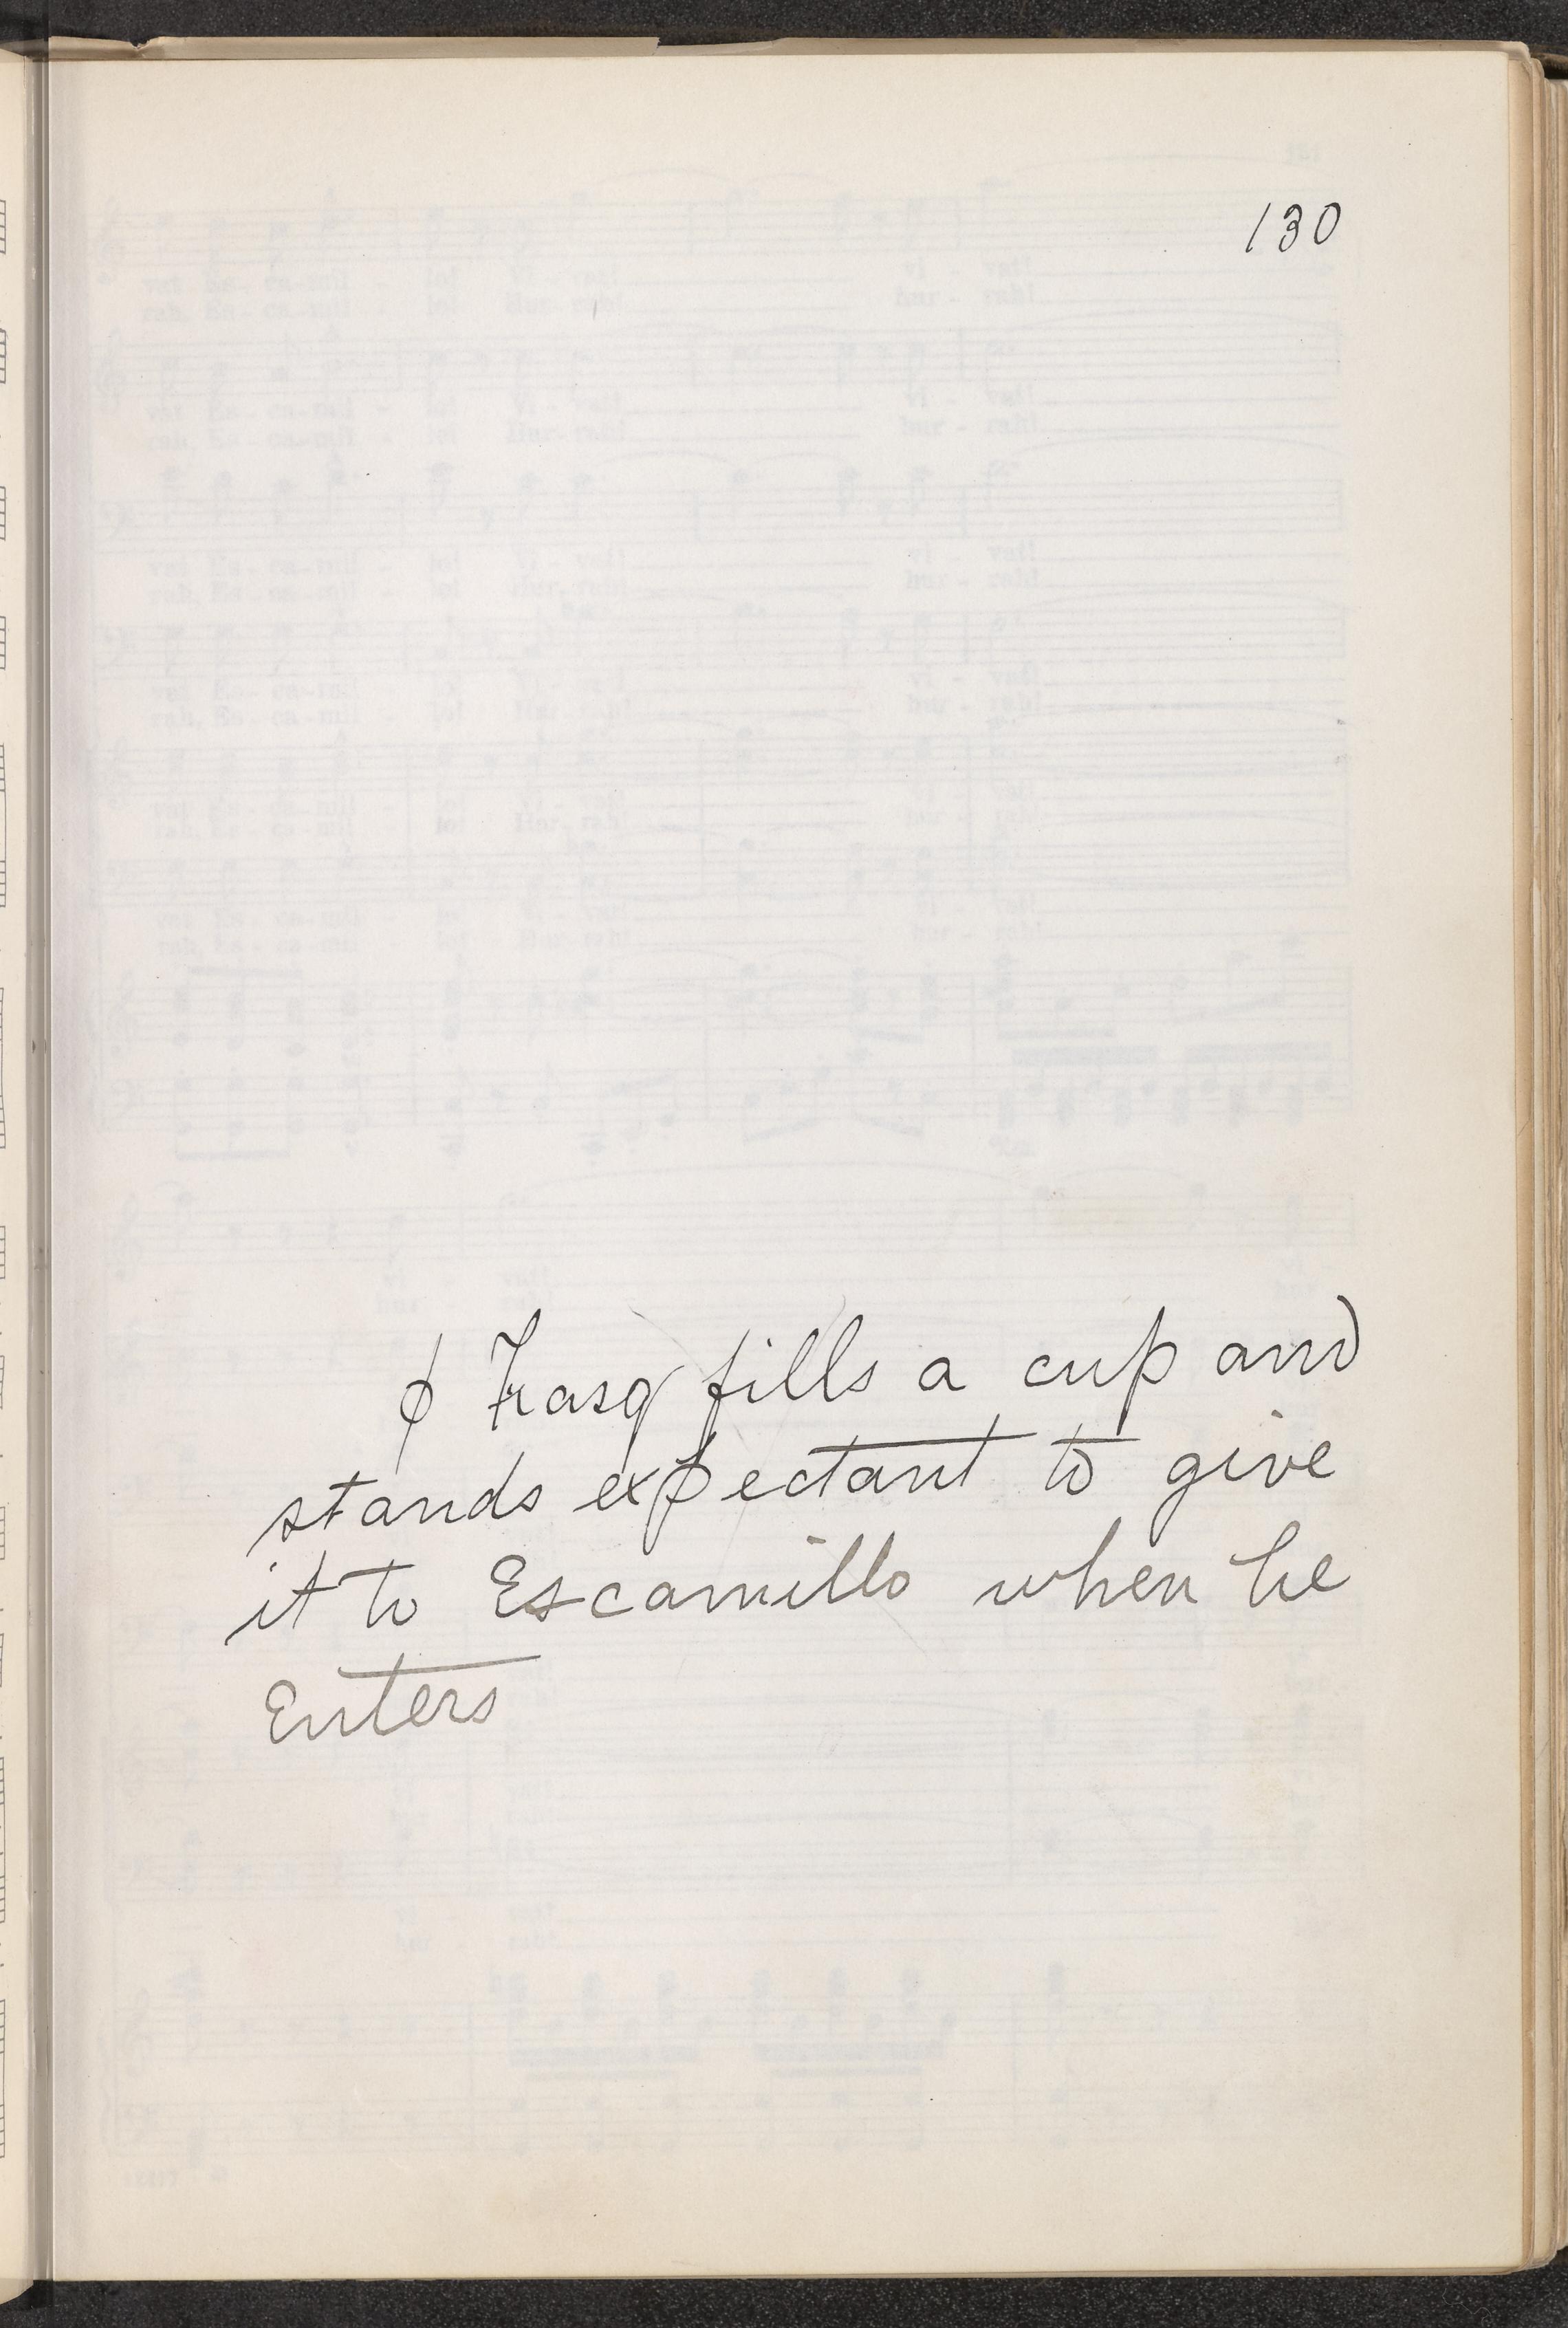 130
ϕ Frasq fills a cup and
stands expectant to give
it to Escamillo when he
Enters